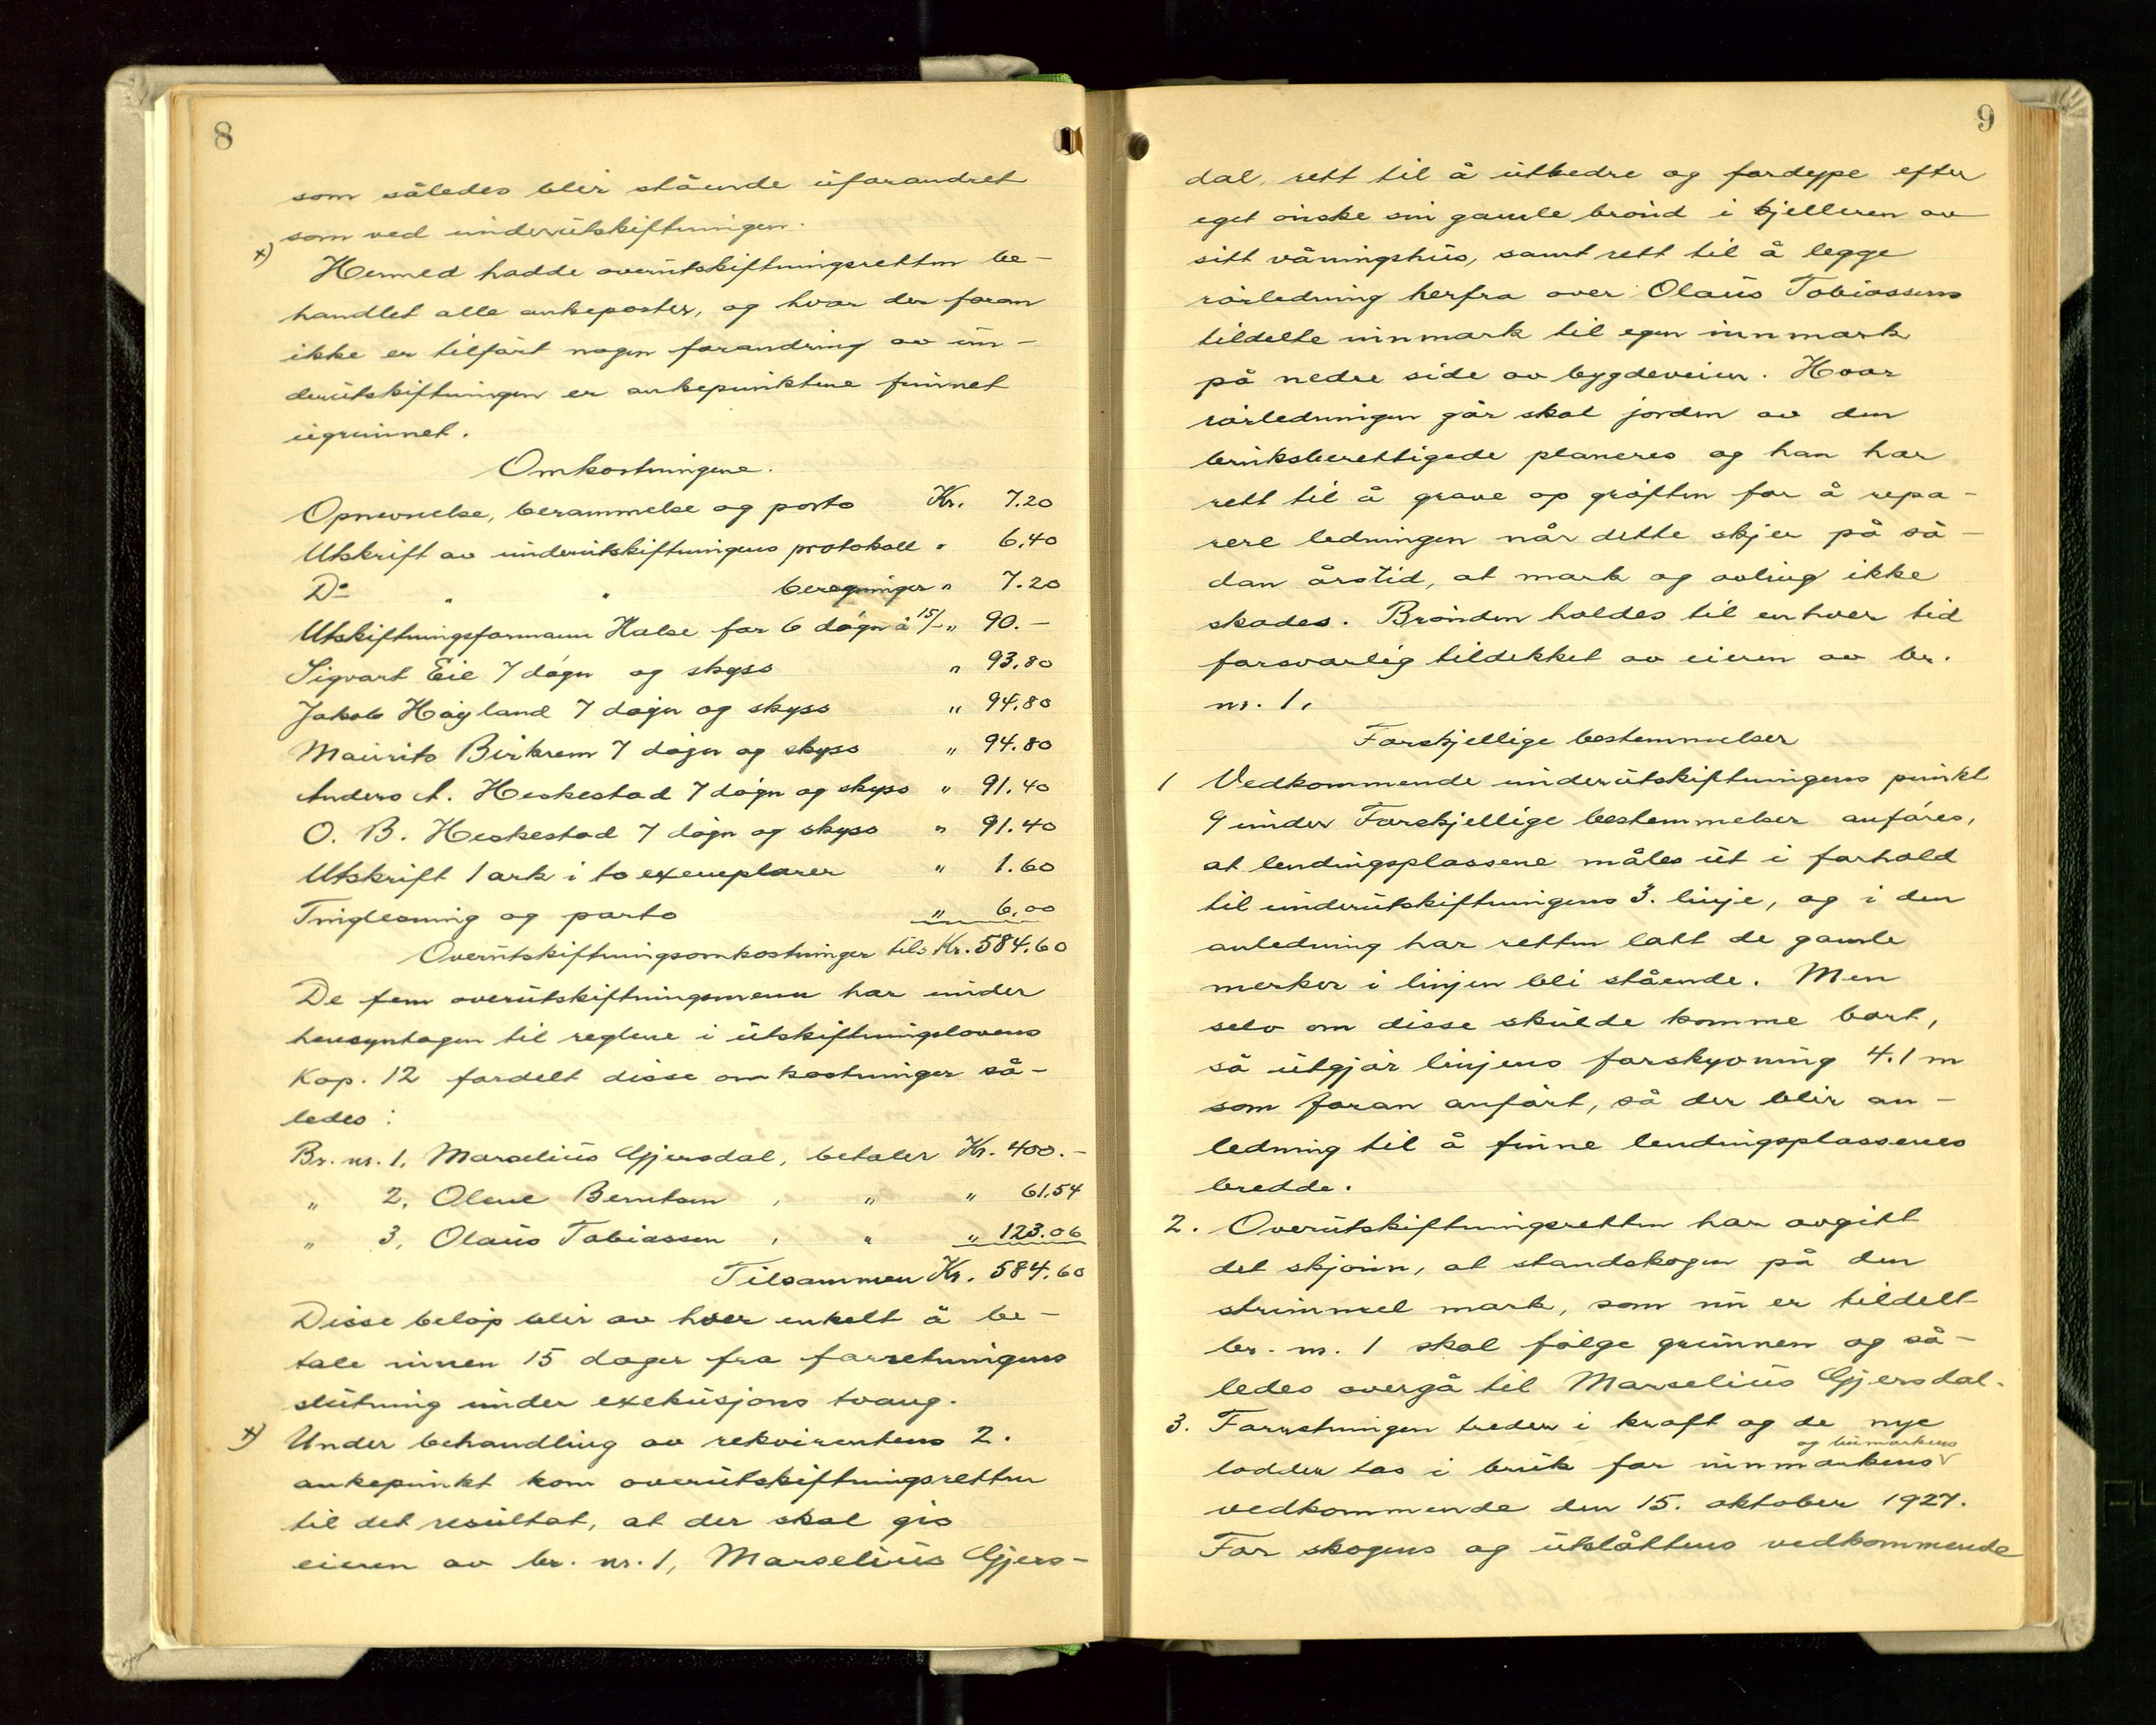 8
som således blir stående uforandret
som ved underutskiftningen.
x) Hermed hadde overutskiftningsretten be-
handlet alle ankeposter, og hvor der foran
ikke er tilført nogen forandring av un-
derutskiftningen er ankepunktene funnet
ugrunnet.
Omkostningene.
Opnevnelse, berammelse og porto Kr. 7.20
Utskrift av underutskiftningens protokoll " 6.40
Do " " beregninger " 7.20
Utskiftningsformann Halse for 6 døgn à 15/- " 90.-
Sigvart Eie 7 døgn og skyss " 93.80
Jakob Høyland 7 døgn og skyss " 94.80
Maurits Birkrem 7 døgn og skyss " 94.80
Anders A. Heskestad 7 døgn og skyss " 91.40
O. B. Heskestad 7 døgn og skyss " 91.40
Utskrift 1 ark i to exemplarer " 1.60
Tinglesning og porto " 6.00
Overutskiftningsomkostninger tils. Kr. 584.60
De fem overutskiftningsmenn har under
hensyntagen til reglene i utskiftningslovens
Kap. 12 fordelt disse omkostninger så-
ledes:
Br. nr. 1, Marselius Gjersdal, betaler Kr. 400.-
" 2, Olene Berntsen , " " 61.54
" 3, Olaus Tobiassen , " " 123.06
Tilsammen Kr. 584.60
Disse beløp blir av hver enkelt å be-
tale innen 15 dager fra forretningens
slutning under exekusjons tvang.
x) Under behandling av rekvirentens 2.
ankepunkt kom overutskiftningsretten
til det resultat, at der skal gis
eieren av br. nr. 1, Marselius Gjers-
9
dal, rett til å utbedre og fordype efter
eget ønske sin gamle brønd i kjelleren av
sitt våningshus, samt rett til å legge
rørledning herfra over Olaus Tobiassens
tildelte innmark til egen innmark
på nedre side av bygdeveien. Hvor
rørledningen går skal jorden av den
bruksberettigede planeres og han har
rett til å grave op grøften for å repa-
rere ledningen når dette skjer på så-
dan årstid, at mark og avling ikke
skades. Brønden holdes til enhver tid
forsvarlig tildekket av eieren av br.
nr. 1.
Forskjellige bestemmelser
1 Vedkommende underutskiftningens punkt
9 under Forskjellige bestemmelser anføres,
at lendingsplassene måles ut i forhold
til underutskiftningens 3. linje, og i den
anledning har retten latt de gamle
merker i linjen bli stående. Men
selv om disse skulde komme bort,
så utgjør linjens forskyvning 4.1 m
som foran anført, så der blir an-
ledning til å finne lendingsplassenes
bredde.
2. Overutskiftningsretten har avgitt
det skjønn, at standskogen på den
strimmel mark, som nu er tildelt
br. nr. 1 skal følge grunnen og så-
ledes overgå til Marselius Gjersdal.
3. Forretningen treder i kraft og de nye
og bumarkens
lodder tas i bruk for innmarkens
vedkommende den 15. oktober 1927.
For skogens og utslåttens vedkommende